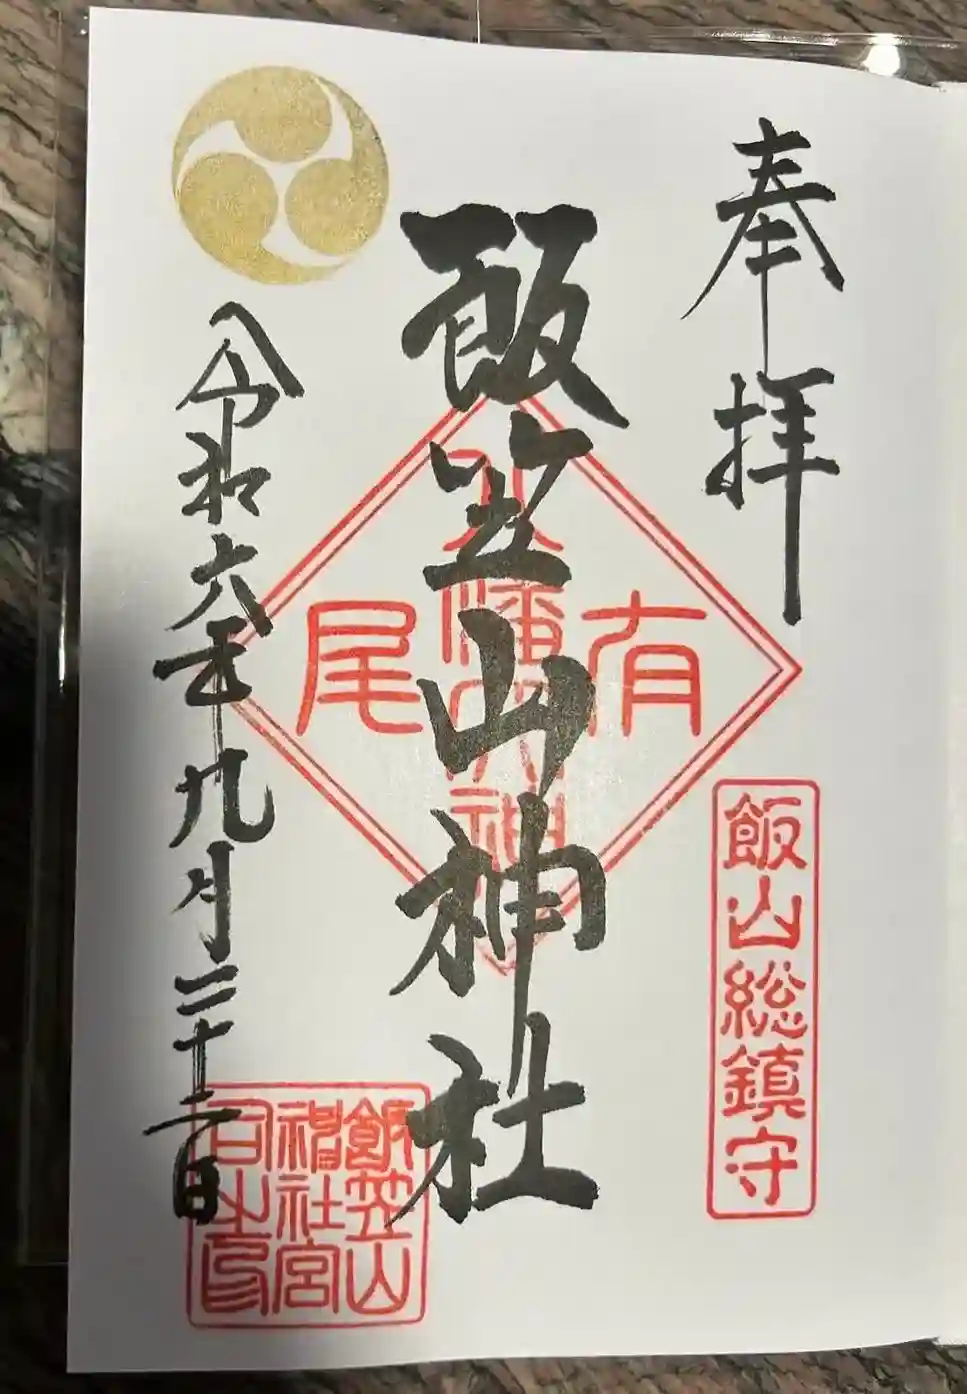 奉拝
飯山総鎮守
飯笠山神社
有尾
八幡大神
令和六年九月二十二日
飯笠山
神社宮
司之印